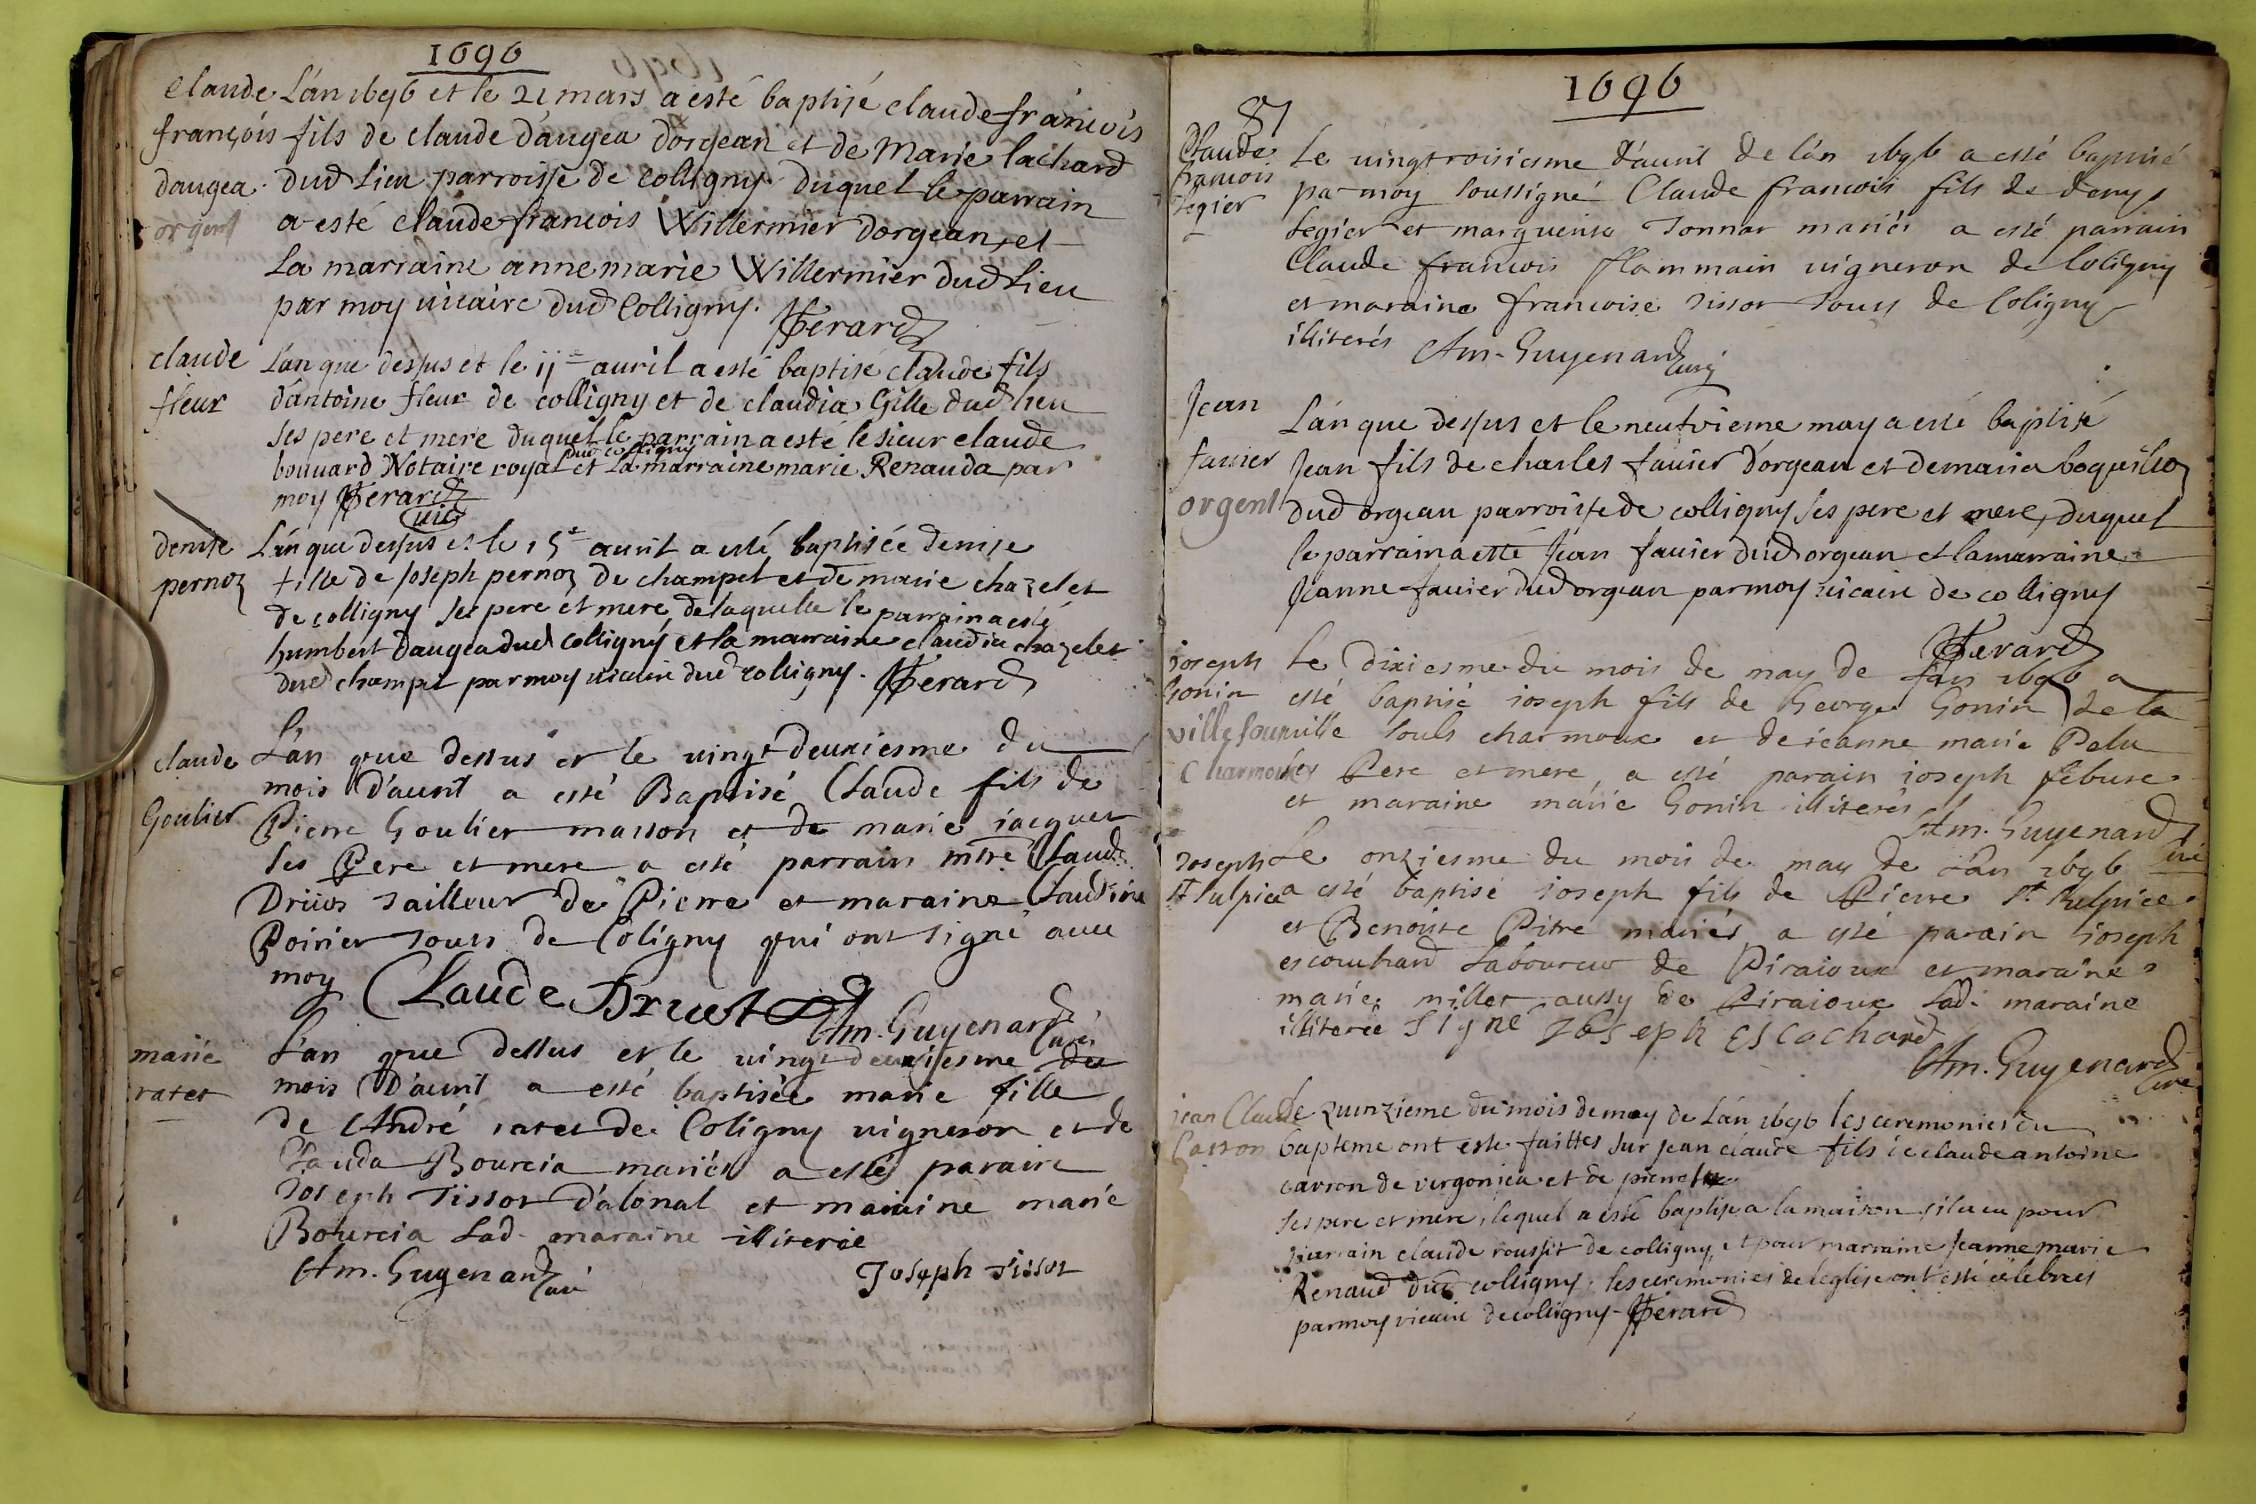 1696
Claude L'an 1696 et le 21 mars a esté baptisé claude françois
françois fils de claude d'augea dorgean et de Marie lachard
daugea dud Lieu parroisse de colligny duquel le parrain
orgent a esté claude francois Willermier dorgean, et
La marraine anne marie Willermier dud Lieu
par moy vicaire dud Colligny. Ferard
claude Lan que dessus et le 11e auril a esté baptisé claude fils
fleur d'antoine fleur de colligny et de claudia Gille dud lieu
ses pere et mere duquel le parrain a esté le sieur claude
dud colligny
bouuard Notaire royal et La marraine marie Renauda par
moy Ferard
vic
denise L'an que dessus et le 15e auril a esté baptisée denise
pernoz fille de Joseph pernoz de champel et de marie chazelet
de colligny ses pere et mere de laquelle le parrain a esté
humbert daugea dud colligny et la marraine claudia chazelet
dud champel par moy vicaire dud colligny. Ferard
claude L'an que dessus et le vingt deuxiesme du
mois d'auril a esté Baptisé Claude fils de
Goulier Pierre Goulier masson et de marie jacquet
ses Pere et mere a esté parrain mtre Claude
Driios tailleur de Pierre et maraine Claudine
Poirier tous de Coligny qui ont signé auec
moy Claude Druet
Am. Guyenard
curé
marie L'an que dessus et le vingt deuxiesme du
ratet mois d'auril a esté baptisée marie fille
de André ratet de Coligny vigneron et de
Clauda Bourcia mariés a esté parain
Joseph Tissot d'alonal et maraine marie
Bourcia Lad. maraine illiterée
Am. Guyenard curé Joseph tissot
1696
87
Claude Le vingtroisiesme d'auril de l'an 1696 a esté baptisé
francois par moy soussigné Claude francois fils de denys
Legier Legier et marguerite Tonnar mariés a esté parrain
Claude francois flammain vigneron de Coligny
et maraine francoise tissot tous de Coligny
illiterés Am. Guyenard curé
Jean L'an que dessus et le neufvieme may a esté baptisé
fauier Jean fils de charles fauier d'orgean et de maria boquilloz
orgent dud orgean parroisse de colligny ses pere et mere, duquel
le parrain a esté Jean fauier dud orgean et la marraine
Jeanne fauier dud orgean par moy vicaire de colligny
Ferard
joseph Le dixiesme du mois de may de l'an 1696 a
Gonin esté baptisé joseph fils de George Gonin de la
ville sou ville souls charmoux et de jeanne marie Pelu
Charmoux ses Pere et mere, a esté parain joseph febure
et maraine marie Gonin illiterés
Am. Guyenard
curé
Joseph Le onziesme du mois de may de L'an 1696
St Sulpice a esté baptisé joseph fils de Pierre St Sulpice
et Benoiste Pitre mariés a esté parain joseph
escouchard Laboureur de Piraioux et maraine
marie millet aussy de Piraioux Lad. maraine
illiterée Signé Joseph Escachard
Am. Guyenard
curé
jean Claude Le quinzieme du mois de may de L'an 1696 les ceremonies du
Carron bapteme ont esté faittes sur jean claude fils de claude antoine
carron de vergonjea et de pierrette
ses pere et mere, lequel a esté baptisé a la maison, il a eu pour
parrain claude roussit de colligny, et pour marraine Jeanne marie
Renaud dud colligny. les ceremonies de leglise ont esté celebrees
par moy vicaire de colligny - Ferard